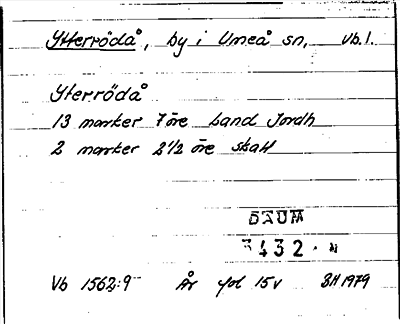 Ytterrödå, by i Umeå sn, Vb.l.
Yterrödå
13 marker 7 öre Land Jordh
2 marker 2 1/2 öre skatt
3432
Vb 1562:9 År fol 15v BH 1979